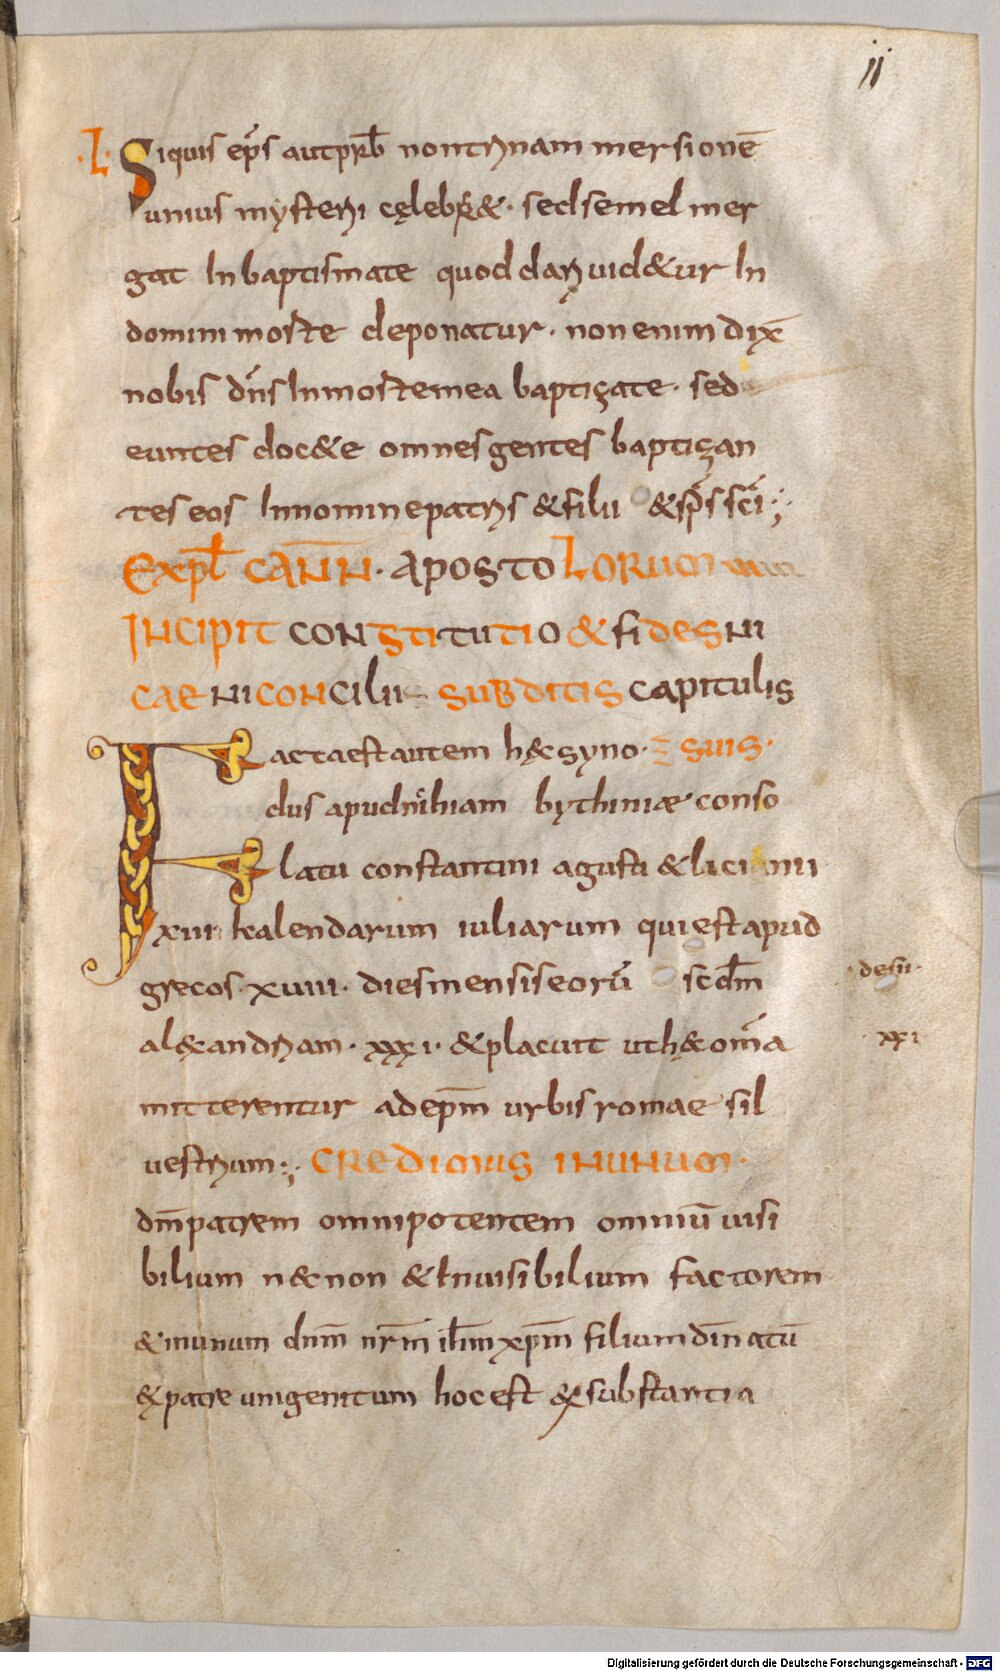 ii
·L· Siquis ep̄s aut prb̄ non trinam mersionē
unius mysterii cęlebr&· sed semel mer
gat In baptismate quod dari uid&ur In
domini morte deponatur· non enim dix̄
nobis dn̄s In morte mea baptizate· sed
euntes doc&e omnes gentes baptizan
tes eos In nomine patris & filii & sp̄s sc̄i;
Expl̄ CANN̄· APOSTOLORUM
INCIPIT CONSTITUTIO & FIDES NI
CAENI CONCILII SUBDITIS CAPITULIS
Facta est autem hęc syno· SUIS·
dus apud nihiam bythiniæ conso
latu constantini agusti & licinii
xiii kalendarum iuliarum qui est apud
grecos· xuiiii· dies mensis eorū scdm̄ ·desii·
alęxandriam· xxxi· & placuit ut hęc om̄a · xxi
mitterentur ad ep̄m urbis romae sil
uestrum:, CREDIMUS IN UNUM·
dm̄ patrem omnipotentem omniū uisi
bilium n&non & Inuisibilium factorem
& in unum dn̄m nr̄m ih̄m xp̄m filium dī natū
ex patre unigenitum hoc est ex substantia
Digitalisierung gefördert durch die Deutsche Forschungsgemeinschaft - DFG